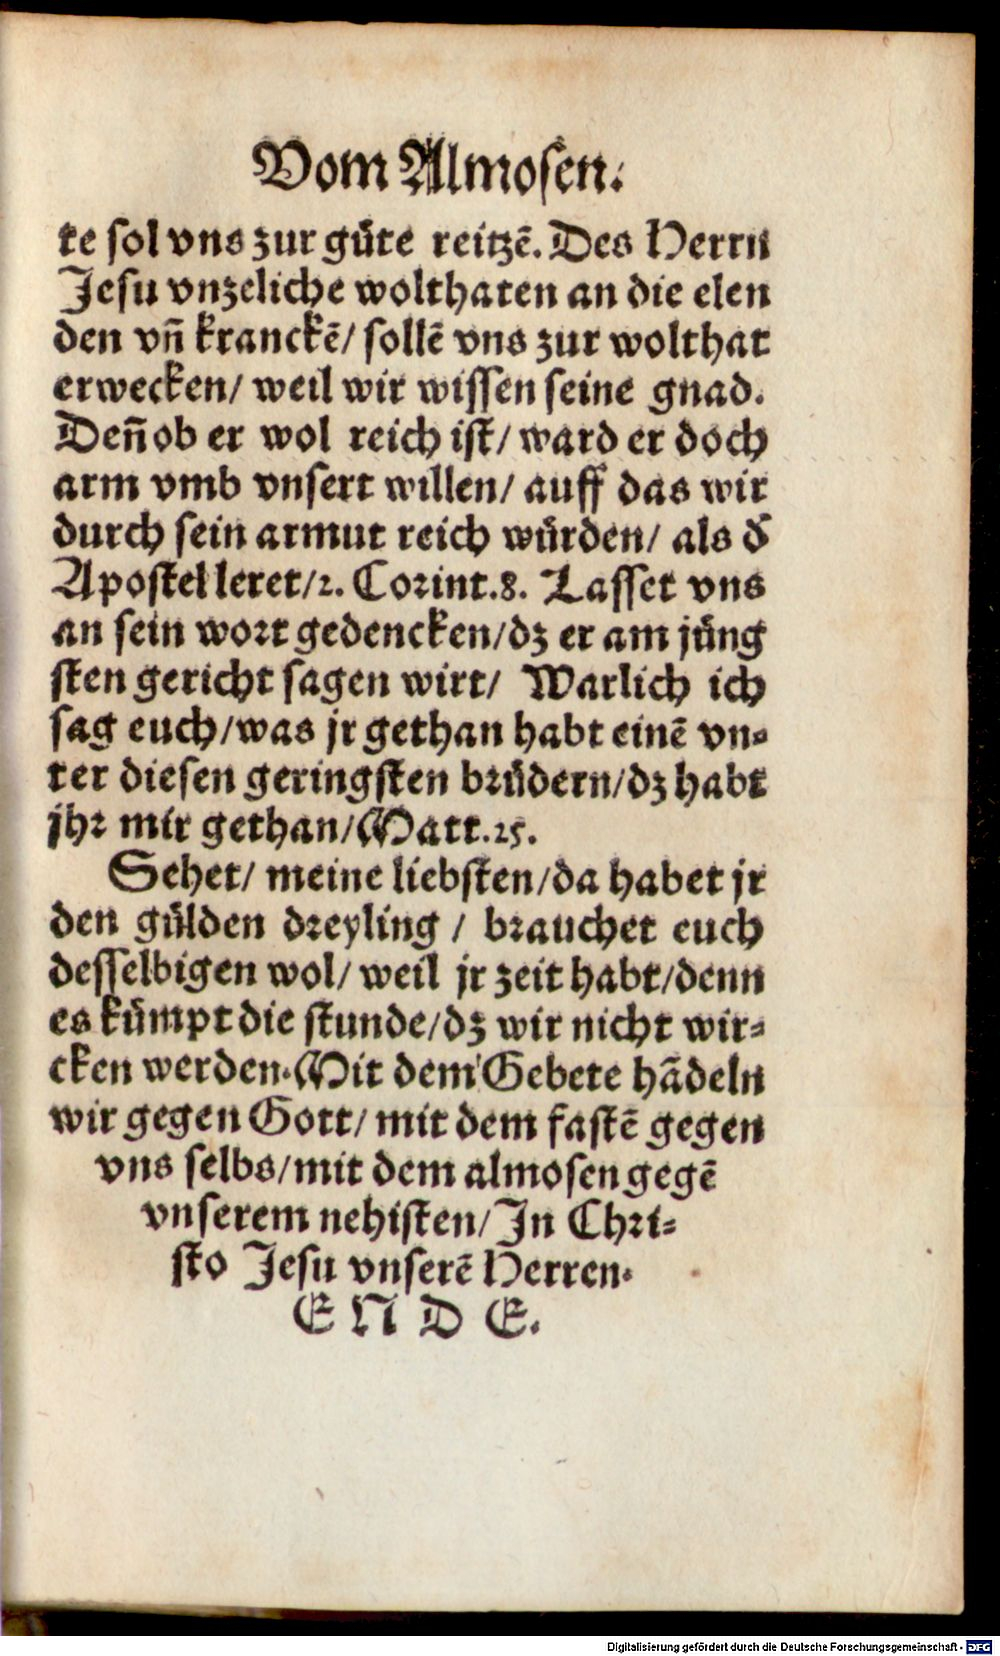 Vom Almosen.
te sol vns zur güte reitzẽ. Des Herrn
Jesu vnzeliche wolthaten an die elen
den vñ kranckẽ/ sollẽ vns zur wolthat
erwecken/ weil wir wissen seine gnad.
Deñ ob er wol reich ist/ ward er doch
arm vmb vnsert willen/ auff das wir
durch sein armut reich würden/ als d̕
Apostel leret/2. Corint.8. Lasset vns
an sein wort gedencken/dz er am jüng
sten gericht sagen wirt/ Warlich ich
sag euch/was jr gethan habt einẽ vn⸗
ter diesen geringsten brüdern/dz habt
jhr mir gethan/Matt.25.
Sehet/ meine liebsten/da habet jr
den gülden dreyling / brauchet euch
desselbigen wol/ weil jr zeit habt/denn
es kümpt die stunde/dz wir nicht wir⸗
cken werden. Mit dem Gebete hãdeln
wir gegen Gott/ mit dem fastẽ gegen
vns selbs/mit dem almosen gegẽ
vnserem nehisten/Jn Chri⸗
sto Jesu vnserẽ Herren.
E N D E.
Digitalisierung gefördert durch die Deutsche Forschungsgemeinschaft - DFG